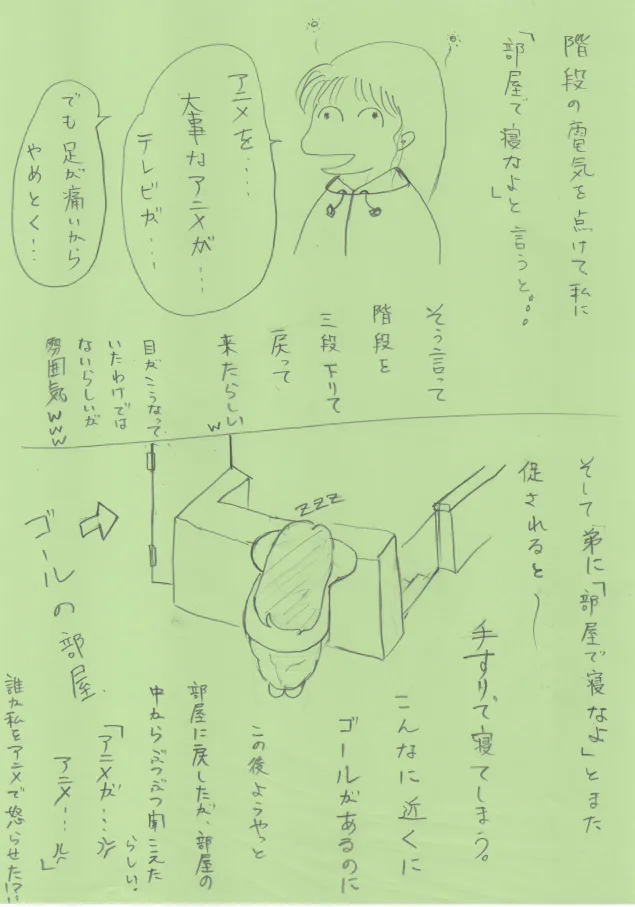 階段の電気を点けて私に
「部屋で寝なよ」と言うと。。。
アニメを‥‥
大事なアニメが‥
テレビが‥‥
でも足が痛いから
やめとく‥‥
そう言って
階段を
三段下りて
戻って
来たらしいw
目がこうなって
いたわけでは
ないらしいが
雰囲気www
そして弟に「部屋で寝なよ」とまた
促されると〜
手すりで寝てしまう。
こんなに近くに
ゴールがあるのに
zzz
この後ようやっと
部屋に戻したが、部屋の
中からぶつぶつ聞こえた
らしい。
「アニメが‥‥
アニメ‥‥」
ゴールの部屋
誰か私をアニメで怒らせた!?‼